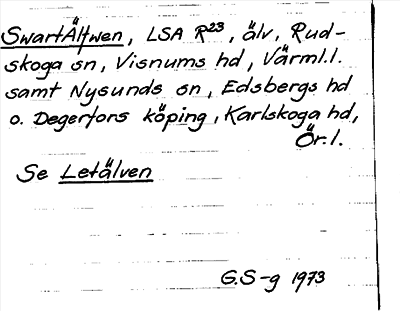 SwartÄlfwen, LSA R23, älv, Rud-
skoga sn, Visnums hd, Värml.l.
samt Nysunds sn, Edsbergs hd
o. Degerfors köping, Karlskoga hd,
Ör.l.
Se Letälven
G.S-g 1973